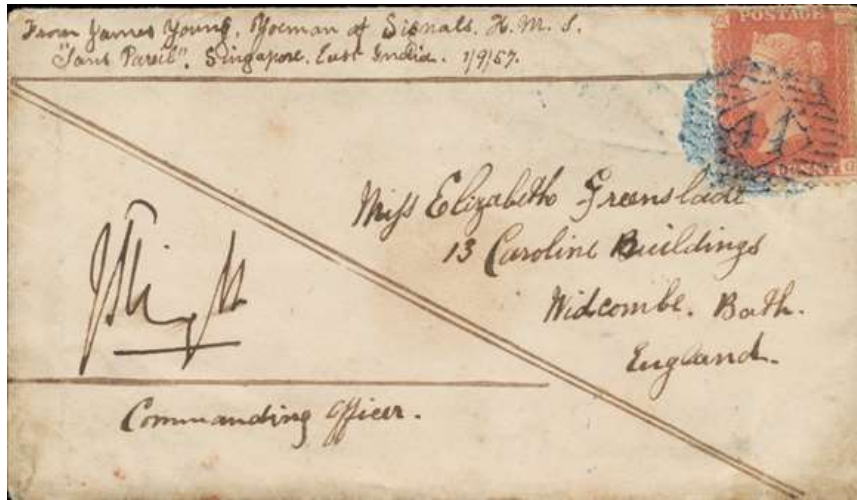 From James Young, Yoeman of Signals. H. M. S.
"Sans Pareil". Singapore. East India. 1/9/57.
POSTAGE
41
PENNY G
Miss Elizabeth Greenslade
13 Caroline Buildings
Widcombe. Bath.
England.
Commanding Officer.